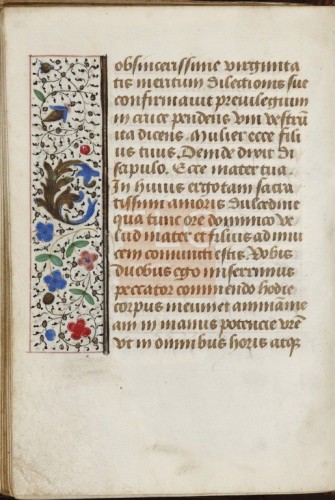 obsincerissime virginita
tis meritum dilectionis sue
confirmavit previlegium
in cruce pendens vnū vestrū
ita dicens. Mulier ecce fili
us tuus. Deinde dixit di
sapulo. Ecce mater tua.
In huius ergo tam sacra
tissimi amoris dulcedine
qua tunc ore dominico ve
lud mater et filius ad inui
cem coniuncti estis. Vobis
duobus ego miserrimus
peccator commendo hodie
corpus meum et animā me
am in manus potencie vrē
vt in omnibus horis atq̄